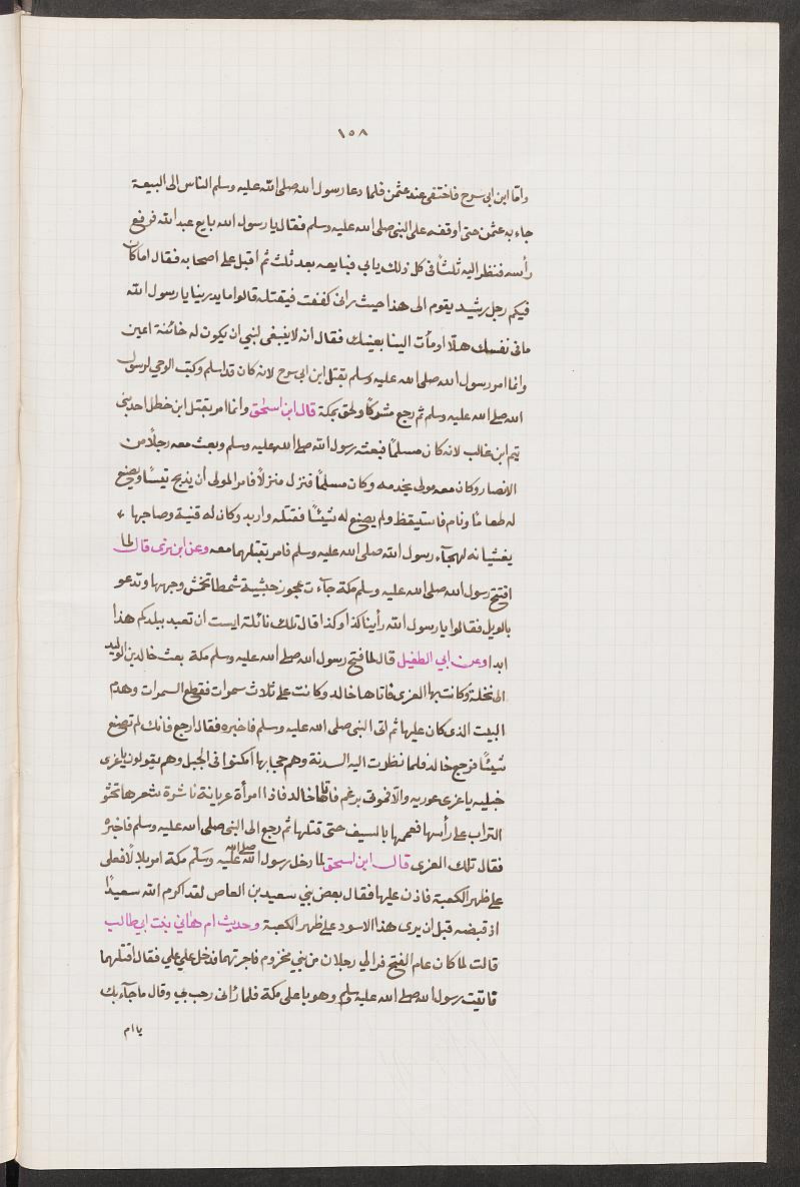 ١٥٨
واما ابن ابي سرح فاختفى عند عثمن فلما دعا رسول الله صلى الله عليه وسلم الناس الى البيعة
جاء به عثمن حتى اوقفه على النبي صلى الله عليه وسلم فقال يا رسول الله بايع عبد الله فرفع
رأسه فنظر اليه ثلثاً في كل ذلك يابي فبايعه بعد ثلث ثم اقبل على اصحابه فقال اما كان
فيكم رجل رشيد يقوم الى هذا حيث رانى كففت فيقتله قالوا ما يدرينا يا رسول الله
ما في نفسك هلّا اومأت الينا بعينك فقال انه لا ينبغى لنبي ان يكون له خائنة اعين
وانما امر رسول الله صلى الله عليه وسلم بقتل ابن ابي سرح لانه كان قد اسلم وكتب الوحي لرسول
الله صلى الله عليه وسلم ثم رجع مشركًا ولحق بمكة قال ابن اسحٰق وانما امر بقتل ابن خطل احد بنى
تيم ابن غالب لانه كان مسلمًا فبعثه رسول الله صلى الله عليه وسلم وبعث معه رجلًا من
الانصار وكان معه مولى يخدمه وكان مسلمًا فنزل منزلًا فامر المولى ان يذبح تيسًا ويصنع
له طعامًا ونام فاستيقظ ولم يصنع له شيئًا فقتله وارتد وكان له قنية وصاحبها
يغنيانه لهجآء رسول الله صلى الله عليه وسلم فامر بقتلهما معه وعن ابن بزى قال لما
افتتح رسول الله صلى الله عليه وسلم مكة جآءت عجوز حبشية شمطا تخمش وجهها وتدعو
بالويل فقالوا يا رسول الله رأينا كذا وكذا قال تلك نائلة ايست ان تعبد ببلدكم هذا
ابدا وعن ابي الطفيل قال لما فتح رسول الله صلى الله عليه وسلم مكة بعث خالد بن الوليد
الى نخلة وكانت بها العزى فاتاها خالد وكانت على ثلاث سمرات فقطع السمرات وهدم
البيت الذى كان عليها ثم اتى النبي صلى الله عليه وسلم فاخبره فقال ارجع فانك لم تصنع
شيئًا فرجع خالد فلما نظرت اليه السدنة وهم حجابها امكنوا في الجبل وهم يقولون يا عزى
خبليه يا عزى عوريه والا فموتى برغم فاتاها خالد فاذا امرأة عريانة ناشرة شعرها تحثو
التراب على رأسها فعممها بالسيف حتى قتلها ثم رجع الى النبي صلى الله عليه وسلم فاخبره
فقال تلك العزى قال ابن اسحق لما دخل رسول الله صلى الله عليه وسلم مكة امر بلالًا فعلى
على ظهر الكعبة فاذن عليها فقال بعض بني سعيد بن العاص لقد اكرم الله سعيدًا
اذ قبضه قبل ان يرى هذا الاسود على ظهر الكعبة وحديث ام هاني بنت ابي طالب
قالت لما كان عام الفتح فر الي رجلان من بني مخزوم فاجرتهما فدخل علي علي فقال اقتلهما
فاتيت رسول الله صلى الله عليه وسلم وهو باعلى مكة فلما رأنى رحب بي وقال ما جآء بك
يا ام